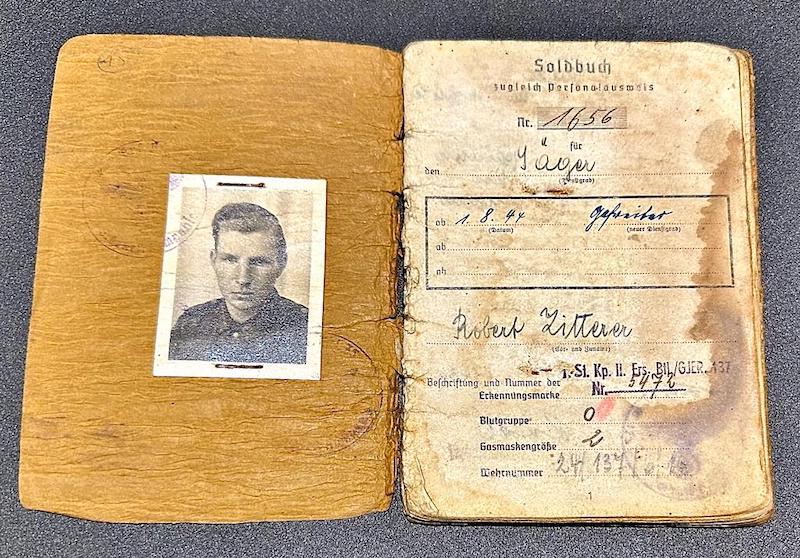 Soldbuch
zugleich Personalausweis
Nr. 1656
für
den Jäger
(Dienstgrad)
ab 1.8.44 Gefreiter
(Datum) (neuer Dienstgrad)
ab
ab
Robert Zitterer
(Vor- und Zuname)
Beschriftung und Nummer der
Erkennungsmarke
1. St. Kp. II. Ers. Btl./GJER. 137
Nr. 5472
Blutgruppe O
Gasmaskengröße 2
Wehrnummer
1